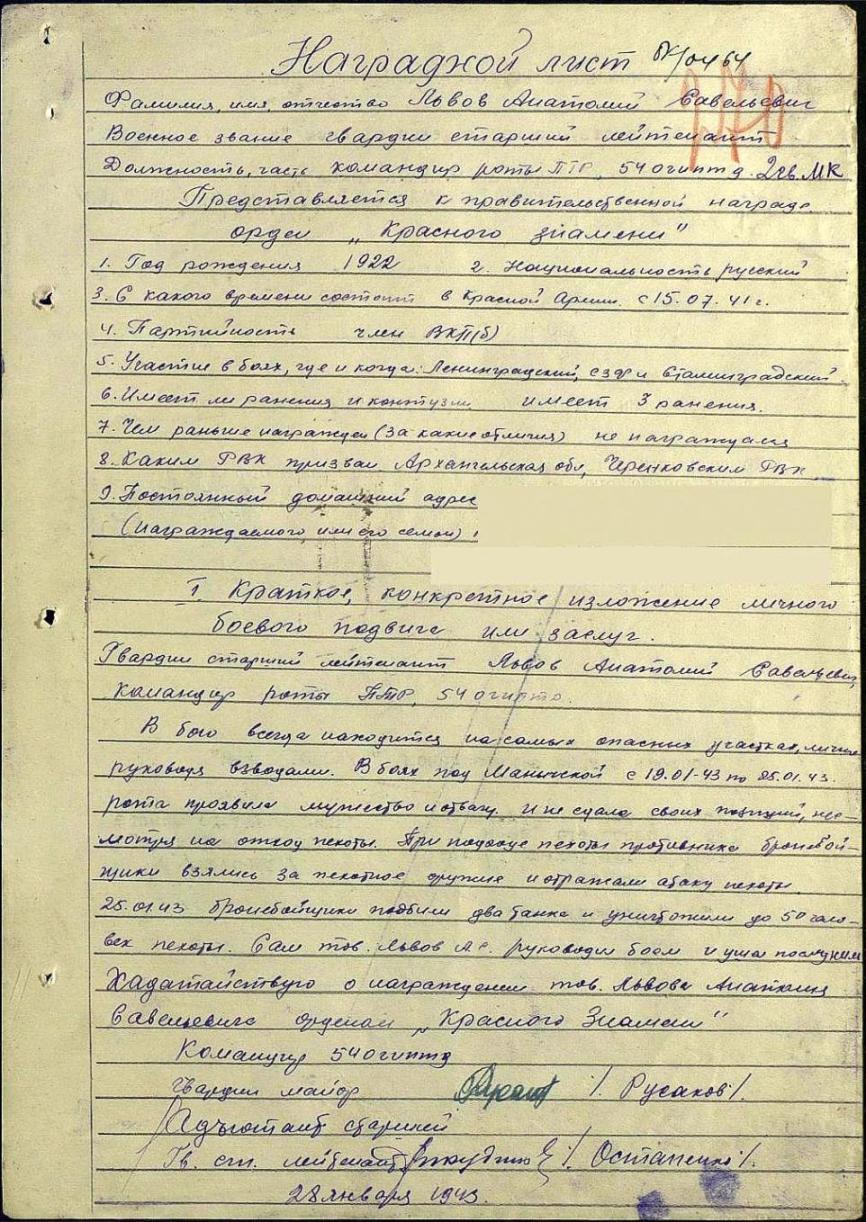 Наградной лист
Фамилия, имя, отчество Львов Анатолий Савельевич
Военное звание гвардии старший лейтенант
Должность, часть командир роты ПТР, 54 огиптд 2 гв. МК
Представляется к правительственной награде
орден „Красного знамени"
1. Год рождения 1922 2. Национальность русский
3. С какого времени состоит в Красной Армии с 15.07.41 г.
4. Партийность член ВКП(б)
5. Участие в боях, где и когда: Ленинградский, СЗФ и Сталинградский
6. Имеет ли ранения и контузии имеет 3 ранения.
7. Чем раньше награжден (за какие отличия) не награждался
8. Каким РВК призван Архангельская обл, Черевковским РВК
9. Постоянный домашний адрес
(награждаемого, или его семьи)
I. Краткое, конкретное изложение личного
боевого подвига или заслуг.
Гвардии старший лейтенант Львов Анатолий Савельевич,
командир роты ПТР, 54 огиптд.
В бою всегда находится на самых опасных участках, лично
руководя взводами. В боях под Манычской с 19.01-43 по 25.01.43.
рота проявила мужество и отвагу. И не сдала своих позиций, нес-
мотря на отход пехоты. При подходе пехоты противника бронебой-
щики взялись за пехотное оружие и отражали атаку пехоты.
25.01.43 бронебойщики подбили два танка и уничтожили до 50 чело-
век пехоты. Сам тов. Львов А.С. руководил боем и ушел последним
Хадатайствую о награждении тов. Львова Анатолия
Савельевича орденом „Красного Знамени"
Командир 54 огиптд
гвардии майор /. Русаков /.
Адъютант старший
Гв. ст. лейтенант /. Остапенко /.
28 января 1943.